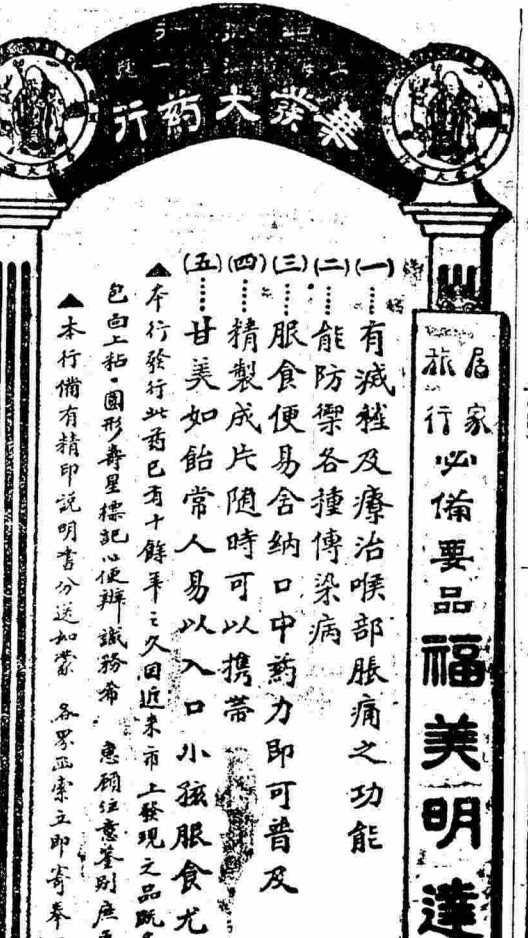 華發大药行
居家旅行必備要品福美明達
(一)……有滅雜及療治喉部脹痛之功能
(二)……能防禦各種傳染病
(三)……服食便易含纳口中药力即可普及
(四)……精製成片随時可以携蒂
(五)……甘美如飴常人易以入口小孩服食尤
▲本行發行此药已有十餘年之久回近来市上發現之品既
包面上粘圓形壽星標記以便辨識務希 惠顧注意鉴别庶
▲本行備有精印說明書份送如蒙 各界函索立即寄奉